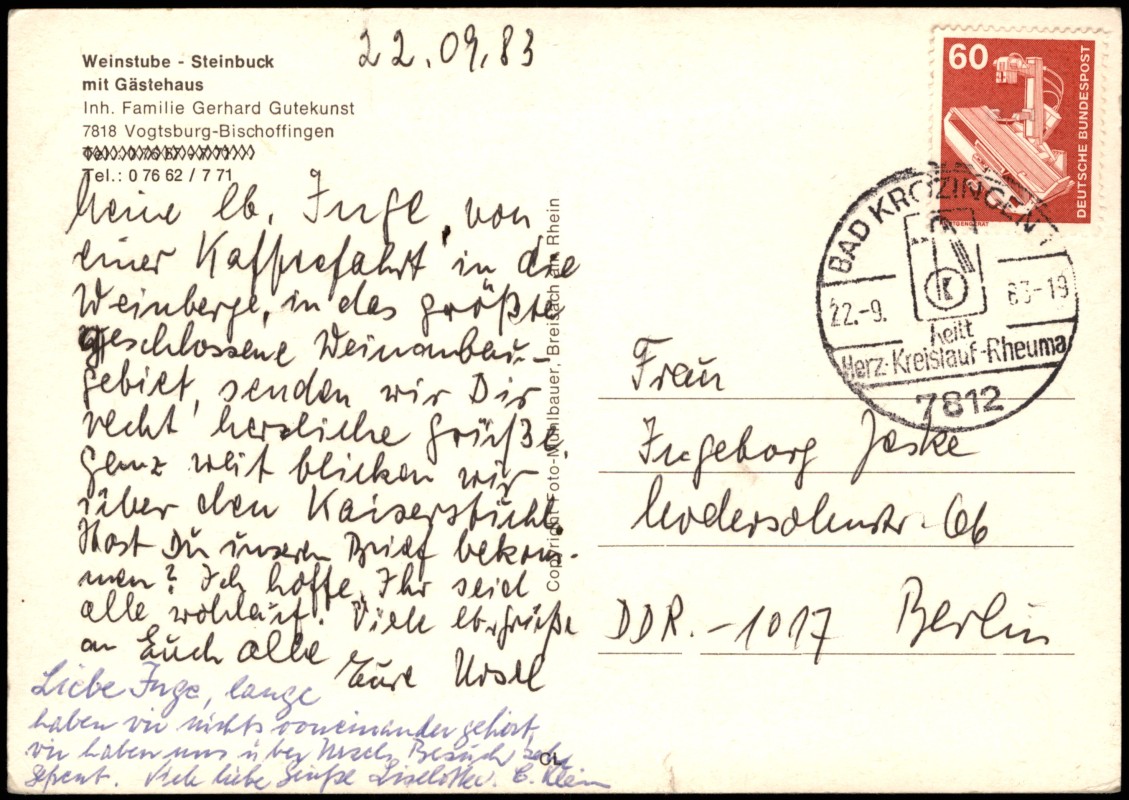 22.09.83
Weinstube - Steinbuck
mit Gästehaus
Inh. Familie Gerhard Gutekunst
7818 Vogtsburg-Bischoffingen
Tel.: 0 76 62 / 7 71
Meine lb. Inge, von
einer Kaffeefahrt in die
Weinberge, in das größte
geschlossene Weinanbau-
gebiet, senden wir Dir
recht herzliche Grüße.
Ganz weit blicken wir
über den Kaiserstuhl.
Hast Du unseren Brief bekom-
men? Ich hoffe, Ihr seid
alle wohlauf. Viele lb. Grüße
an Euch alle
Eure Ursel
Liebe Inge, lange
haben wir nichts voneinander gehört,
wir haben uns über Ursels Besuch sehr
gefreut. Viele liebe Grüße Liselotte. E. Klein
Copyright Foto-Mühlbauer, Breisach am Rhein
CL
60
DEUTSCHE BUNDESPOST
RÖNTGENGERÄT
BAD KROZINGEN 1
22.-9. 83-19
heilt
Herz-Kreislauf-Rheuma
7812
Frau
Ingeborg Jeske
Modersohnstr. 66
DDR.-1017 Berlin